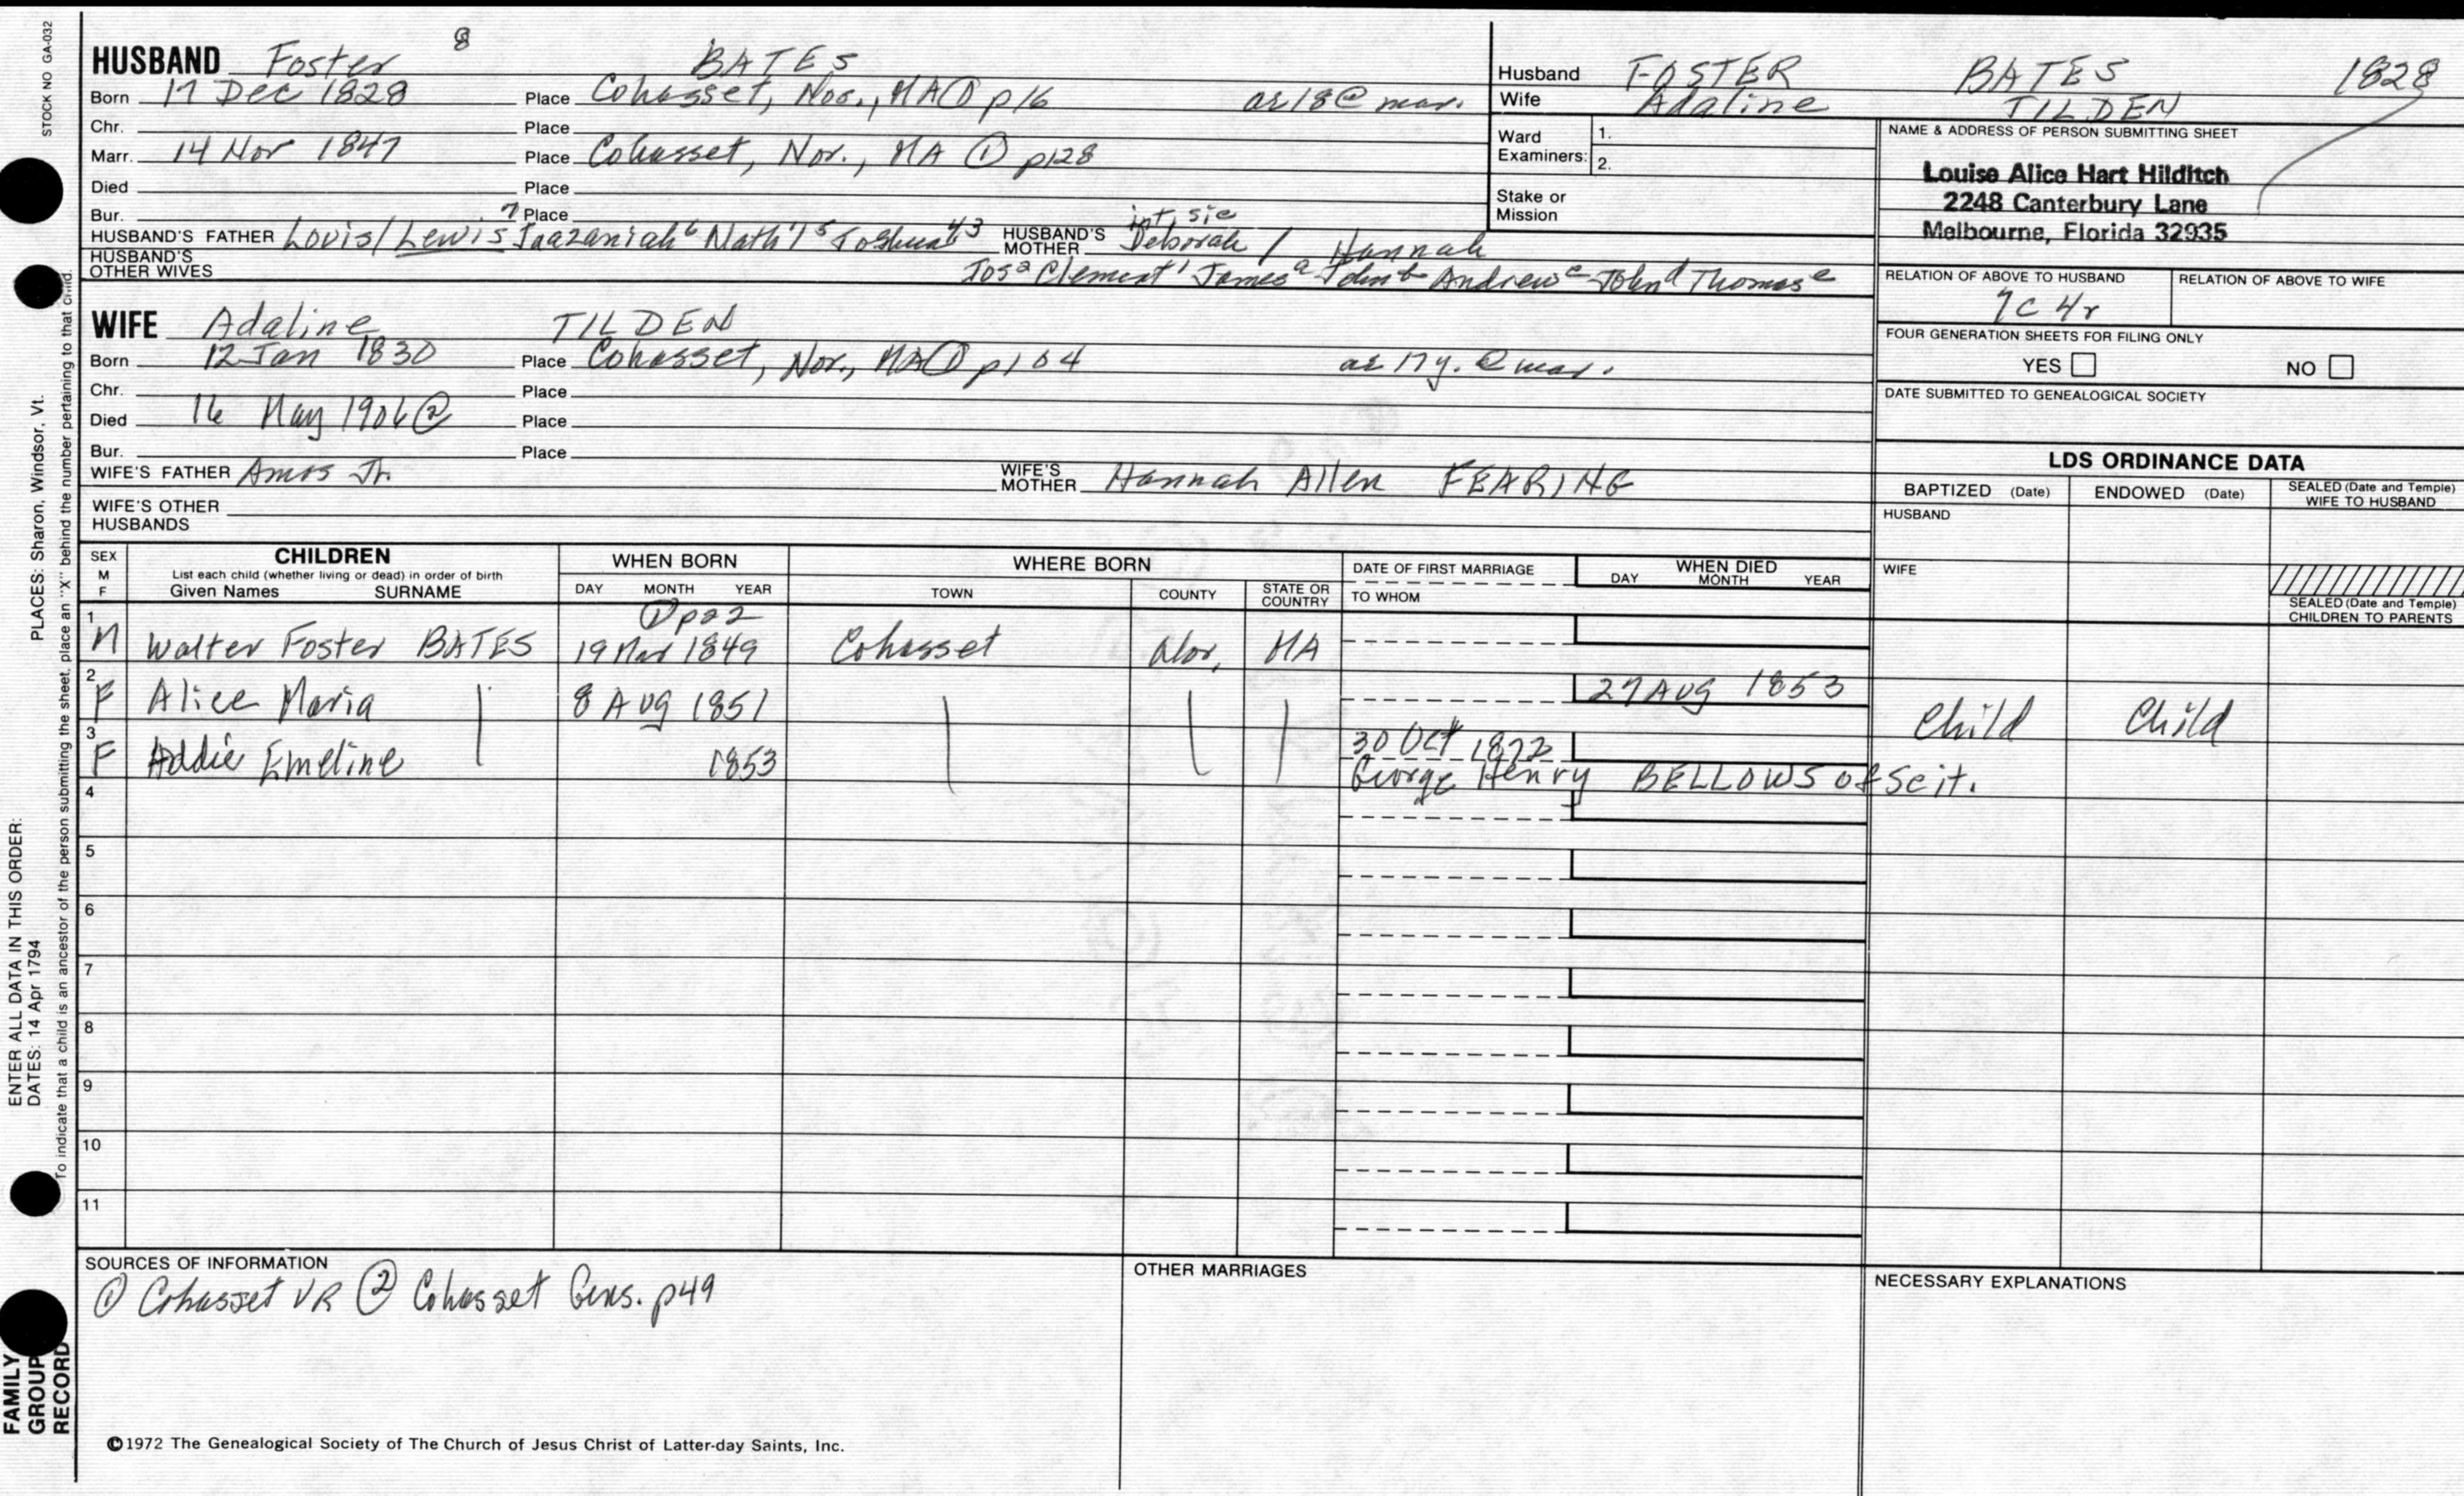 STOCK NO GA-032
HUSBAND Foster 8 BATES
Born 17 Dec 1828 Place Cohasset, Nor., MA ① p16 ae 18 @ mar.
Chr. Place
Marr. 14 Nov 1847 Place Cohasset, Nor., MA ① p128
Died Place
Bur. Place
HUSBAND'S FATHER Louis/Lewis 7 Jaazaniah 6 Nath'l 5 Joshua 43 HUSBAND'S MOTHER int, sic Deborah / Hannah
HUSBAND'S OTHER WIVES Jos 2 Clement 1 James a John b Andrew c John d Thomas e
WIFE Adaline TILDEN
Born 12 Jan 1830 Place Cohasset, Nor., MA ① p104 ae 17y. @ mar.
Chr. Place
Died 16 May 1906 ② Place
Bur. Place
WIFE'S FATHER Amos Jr. WIFE'S MOTHER Hannah Allen FEARING
WIFE'S OTHER HUSBANDS
Husband FOSTER BATES 1828
Wife Adaline TILDEN
Ward Examiners: 1.
2.
Stake or Mission
NAME & ADDRESS OF PERSON SUBMITTING SHEET
Louise Alice Hart Hilditch
2248 Canterbury Lane
Melbourne, Florida 32935
RELATION OF ABOVE TO HUSBAND RELATION OF ABOVE TO WIFE
7C 4r
FOUR GENERATION SHEETS FOR FILING ONLY
YES NO
DATE SUBMITTED TO GENEALOGICAL SOCIETY
LDS ORDINANCE DATA
BAPTIZED (Date) ENDOWED (Date) SEALED (Date and Temple) WIFE TO HUSBAND
HUSBAND
WIFE
SEALED (Date and Temple) CHILDREN TO PARENTS
SEX M F CHILDREN WHEN BORN WHERE BORN DATE OF FIRST MARRIAGE WHEN DIED
List each child (whether living or dead) in order of birth
Given Names SURNAME DAY MONTH YEAR TOWN COUNTY STATE OR COUNTRY TO WHOM DAY MONTH YEAR
① p22
1 M Walter Foster BATES 19 Mar 1849 Cohasset Nor, MA
2 F Alice Maria 8 Aug 1851 27 Aug 1853 Child Child
3 F Addie Emeline 1853 30 Oct 1872
George Henry BELLOWS of Scit.
4
5
6
7
8
9
10
11
SOURCES OF INFORMATION
① Cohasset VR ② Cohasset Gens. p49
OTHER MARRIAGES
NECESSARY EXPLANATIONS
©1972 The Genealogical Society of The Church of Jesus Christ of Latter-day Saints, Inc.
ENTER ALL DATA IN THIS ORDER:
DATES: 14 Apr 1794 PLACES: Sharon, Windsor, Vt.
To indicate that a child is an ancestor of the person submitting the sheet, place an "X" behind the number pertaining to that child.
FAMILY GROUP RECORD